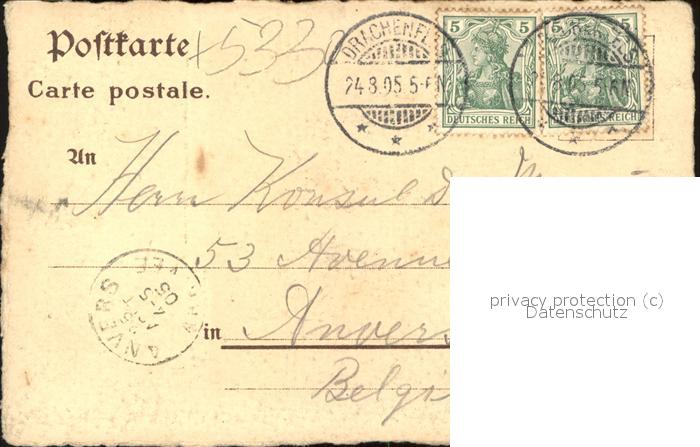 Postkarte +533
Carte postale.
DRACHENFELS
24.8.05.5-6N
5 5
DEUTSCHES REICH
5 5
REICH
An
Herrn Konsul
53 Avenue
in Anvers
Belgi
ANVERS
privacy protection (c)
Datenschutz